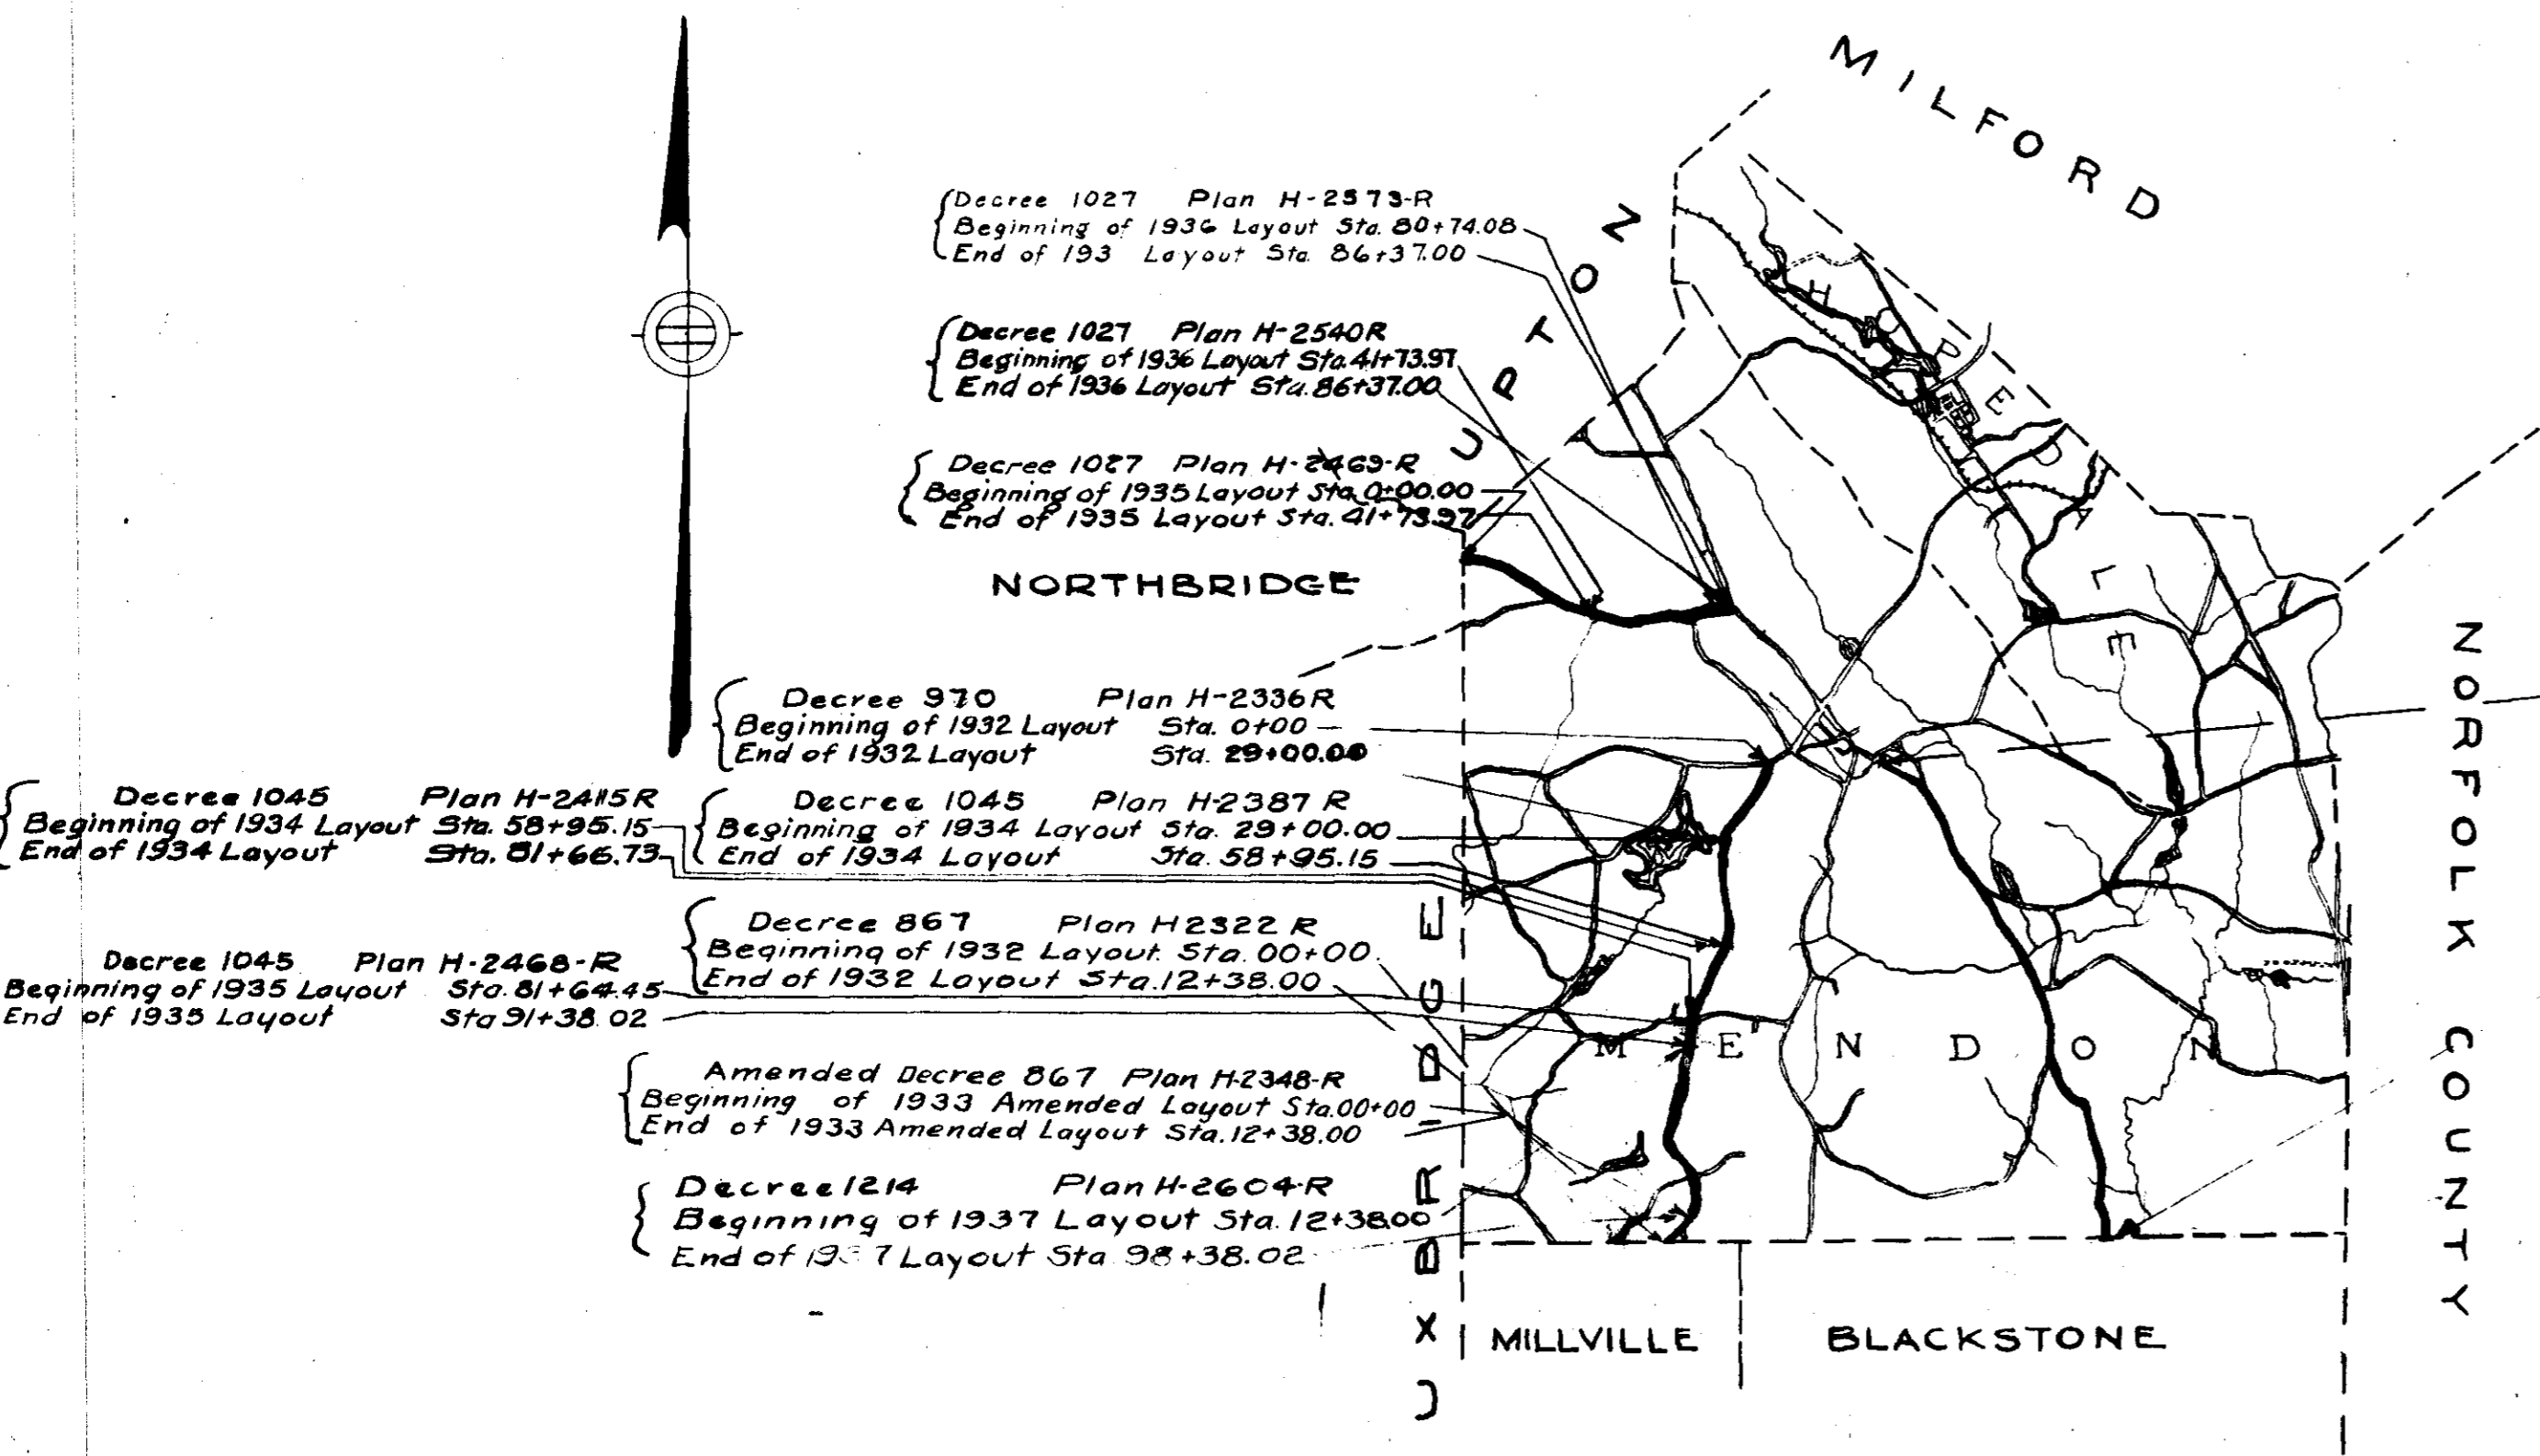 MILFORD
Decree 1027 Plan H-2573-R
Beginning of 1936 Layout Sta. 80+74.08
End of 193 Layout Sta. 86+37.00
UPTON
HOPEDALE
Decree 1027 Plan H-2540R
Beginning of 1936 Layout Sta. 41+73.97
End of 1936 Layout Sta. 86+37.00
Decree 1027 Plan H-2469-R
Beginning of 1935 Layout Sta. 0+00.00
End of 1935 Layout Sta. 41+73.97
NORTHBRIDGE
NORFOLK COUNTY
Decree 970 Plan H-2336R
Beginning of 1932 Layout Sta. 0+00
End of 1932 Layout Sta. 29+00.00
Decree 1045 Plan H-2415R
Beginning of 1934 Layout Sta. 58+95.15
End of 1934 Layout Sta. 81+66.73
Decree 1045 Plan H-2387 R
Beginning of 1934 Layout Sta. 29+00.00
End of 1934 Layout Sta. 58+95.15
Decree 867 Plan H2322 R
Beginning of 1932 Layout Sta. 00+00
End of 1932 Layout Sta. 12+38.00
Decree 1045 Plan H-2468-R
Beginning of 1935 Layout Sta. 81+64.45
End of 1935 Layout Sta 91+38.02
MENDON
Amended Decree 867 Plan H-2348-R
Beginning of 1933 Amended Layout Sta. 00+00
End of 1933 Amended Layout Sta. 12+38.00
Decree 1214 Plan H-2604-R
Beginning of 1937 Layout Sta. 12+38.00
End of 1937 Layout Sta 98+38.02
UXBRIDGE
MILLVILLE
BLACKSTONE